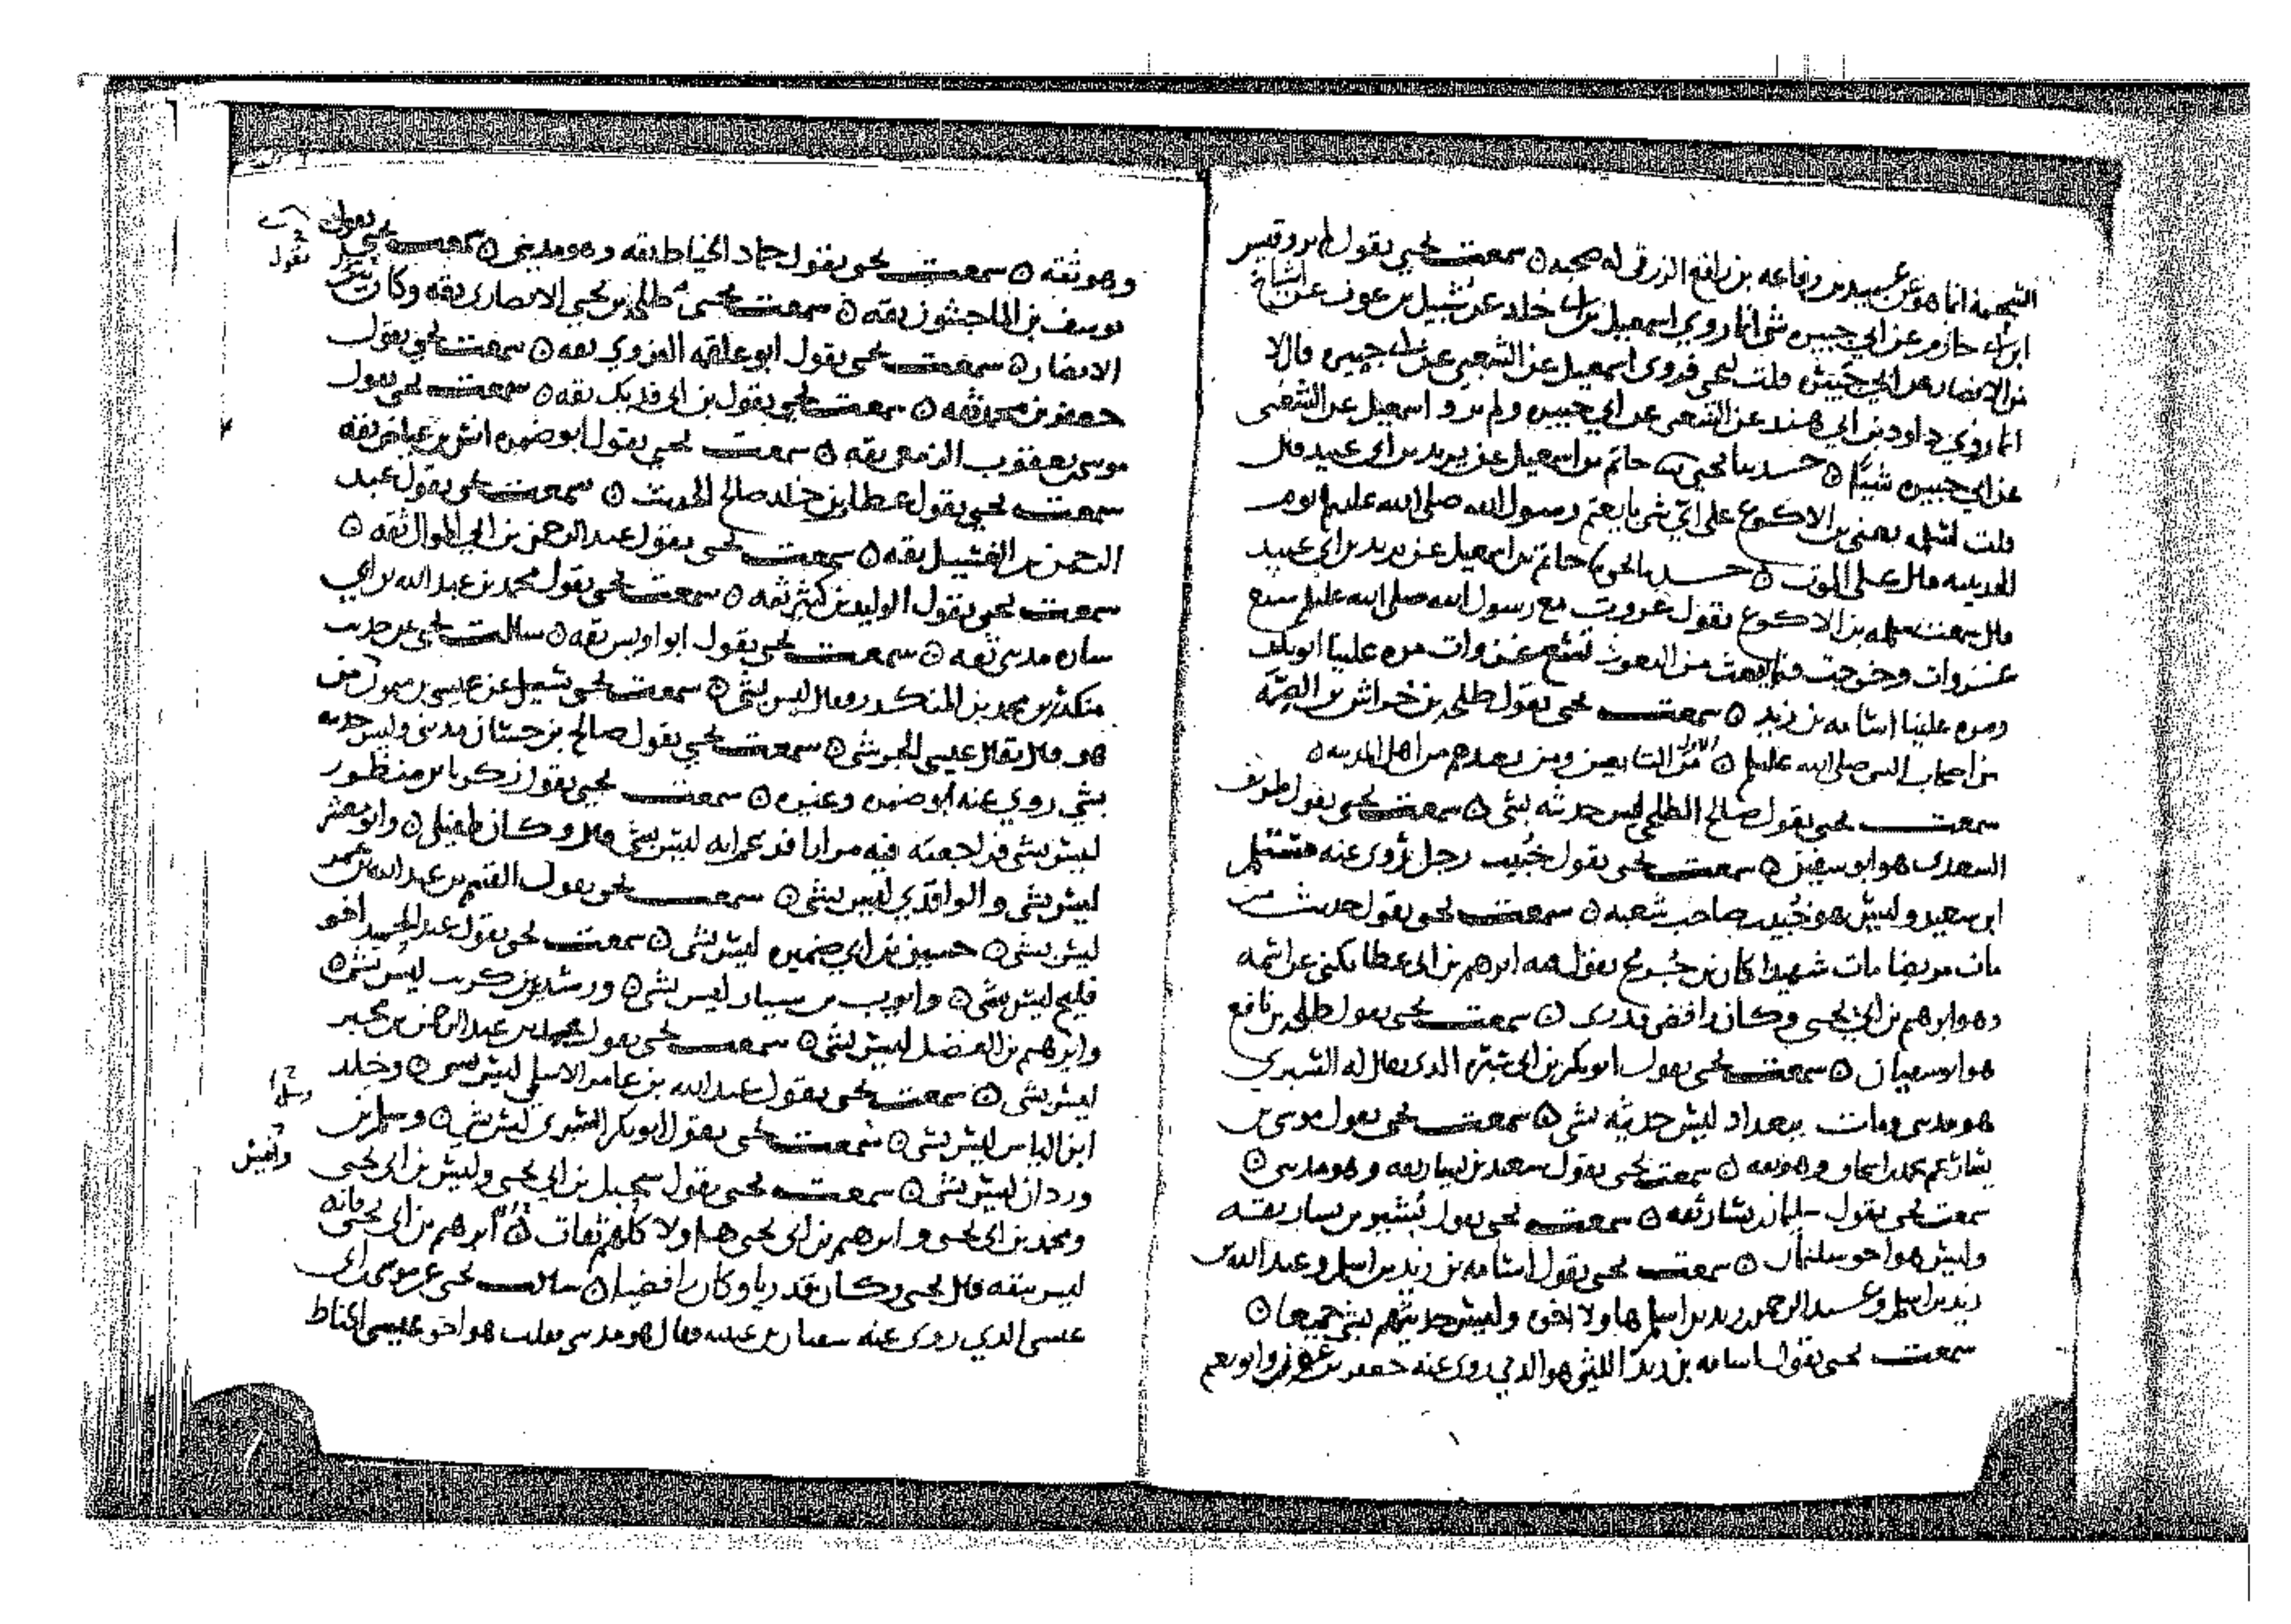 التجيبية انما هو عن عبيد بن رفاعه بن رافع الزرقي له صحبه ۞ سمعت يحيى يقول لم يرو قيس
ابن ابي حازم عن ابي جبيره شي انما روى اسمعيل بن ابي خلد عن شبيل بن عوف عن اشياخ
من الانصار عن ابي جبيره قلت ليحيى فروى اسمعيل عن الشعبي عن ابي جبيره قال لا
انما روى داود بن ابي هند عن الشعبي عن ابي جبيره ولم يرو اسمعيل عن الشعبي
عن ابي جبيره شيئا ۞ حدثنا يحيى حاتم بن اسمعيل عن يزيد بن ابي عبيد قال
قلت لسلمه يعني بن الاكوع على اي شي بايعتم رسول الله صلى الله عليه يوم
الحديبيه قال على الموت ۞ حدثنا يحيى حاتم بن اسمعيل عن يزيد بن ابي عبيد
قال سمعت سلمه بن الاكوع يقول غزوت مع رسول الله صلى الله عليه سبع
غزوات وخرجت فيما يبعث من البعوث تسع غزوات مره علينا ابو بكر
ومره علينا اسامه بن زيد ۞ سمعت يحيى يقول طلحه بن خراش بن الصمه
من اصحاب النبي صلى الله عليه ۞ ومن التابعين ومن بعدهم من اهل المدينه ۞
سمعت يحيى يقول صالح الطلحي ليس حديثه بشي ۞ سمعت يحيى يقول طريف
السعدي هو ابو سفين ۞ سمعت يحيى يقول خبيب رجل يروي عنه
ابن سعيد وليس هو خبيب صاحب شعبه ۞ سمعت يحيى يقول حديث من
مات مريضا مات شهيدا كان بن جريج يقول فيه ابرهيم بن ابي عطا يكني عن اسمه
وهو ابرهيم بن ابي يحيى وكان رافضي قدري ۞ سمعت يحيى يقول طلحه بن نافع
هو ابو سفيان ۞ سمعت يحيى يقول ابو بكر بن ابي سبره الذي يقال له السبري
هو مدني ومات ببغداد ليس حديثه بشي ۞ سمعت يحيى يقول موسى بن
يسار عم محمد بن اسحاق وهو ثقه ۞ سمعت يحيى يقول سعيد بن يسار ثقه وهو مدني ۞
سمعت يحيى يقول سليمان بن يسار ثقه ۞ سمعت يحيى يقول بشير بن يسار ثقه
وليس هو اخو سليمان ۞ سمعت يحيى يقول اسامه بن زيد بن اسلم وعبد الله بن
زيد بن اسلم وعبد الرحمن بن زيد بن اسلم هاولا اخوه وليس حديثهم بشي جميعا ۞
سمعت يحيى يقول اسامه بن زيد الليثي هو الذي روى عنه جعفر بن عون وابو نعيم
وهو ثقه ۞ سمعت يحيى يقول حماد الخياط ثقه وهو مديني ۞ سمعت يحيى يقول
يوسف بن الماجشون ثقه ۞ سمعت يحيى طلحه بن يحيى الانصاري ثقه وكان
الانصار ۞ سمعت يحيى يقول ابو علقمه الفروي ثقه ۞ سمعت يحيى يقول
جعفر بن محمد ثقه ۞ سمعت يحيى يقول بن ابي فديك ثقه ۞ سمعت يحيى يقول
موسى بن يعقوب الزمعي ثقه ۞ سمعت يحيى يقول ابو ضمره انس بن عياض ثقه
سمعت يحيى يقول عطاف بن خلد صالح الحديث ۞ سمعت يحيى يقول عبد
الرحمن بن الغسيل ثقه ۞ سمعت يحيى يقول عبد الرحمن بن ابي الموال ثقه ۞
سمعت يحيى يقول الوليد بن كثير ثقه ۞ سمعت يحيى يقول محمد بن عبد الله بن ابي
مدني ثقه ۞ سمعت يحيى يقول ابو اويس ثقه ۞ سالت يحيى عن حديث
منكدر بن محمد بن المنكدر فقال ليس بشي ۞ سمعت يحيى يسئل عن عيسى بن ميمون من
هو قال يقال عيسى الجرشي ۞ سمعت يحيى يقول صالح بن حسان مدني وليس حديثه
بشي روى عنه ابو ضمره وغيره ۞ سمعت يحيى يقول زكريا بن منظور
ليس بشي فراجعته فيه مرارا فزعم انه ليس بشي قال وكان طفيلي ۞ وابو معشر
ليس بشي والواقدي ليس بشي ۞ سمعت يحيى يقول القسم بن عبد الله بن عمر
ليس بشي ۞ حسين بن ابي ضميره ليس بشي ۞ سمعت يحيى يقول عبد الحميد اخو
فليح ليس بشي ۞ وايوب بن سيار ليس بشي ۞ ورشدين بن كريب ليس بشي ۞
وابرهيم بن الفضل ليس بشي ۞ سمعت يحيى يقول محمد بن عبد الرحمن بن مجبر
ليس بشي ۞ سمعت يحيى يقول عبد الله بن عامر الاسلمي ليس بشي ۞ وخلد
ابن الياس ليس بشي ۞ سمعت يحيى يقول ابو بكر السبري ليس بشي ۞ وسلمة بن
وردان ليس بشي ۞ سمعت يحيى يقول سحبل بن ابي يحيى وانيس بن ابي يحيى
ومحمد بن ابي يحيى وابرهيم بن ابي يحيى هاولا كلهم ثقات ۞ الا ابرهيم بن ابي يحيى فانه
ليس بثقه قال يحيى وكان قدريا وكان رافضيا ۞ سالت يحيى عن موسى بن ابي
عيسى الذي روى عنه سفيان بن عيينه فقال هو مدني قلت هو اخو عيسى الحناط
يقول
وانيس